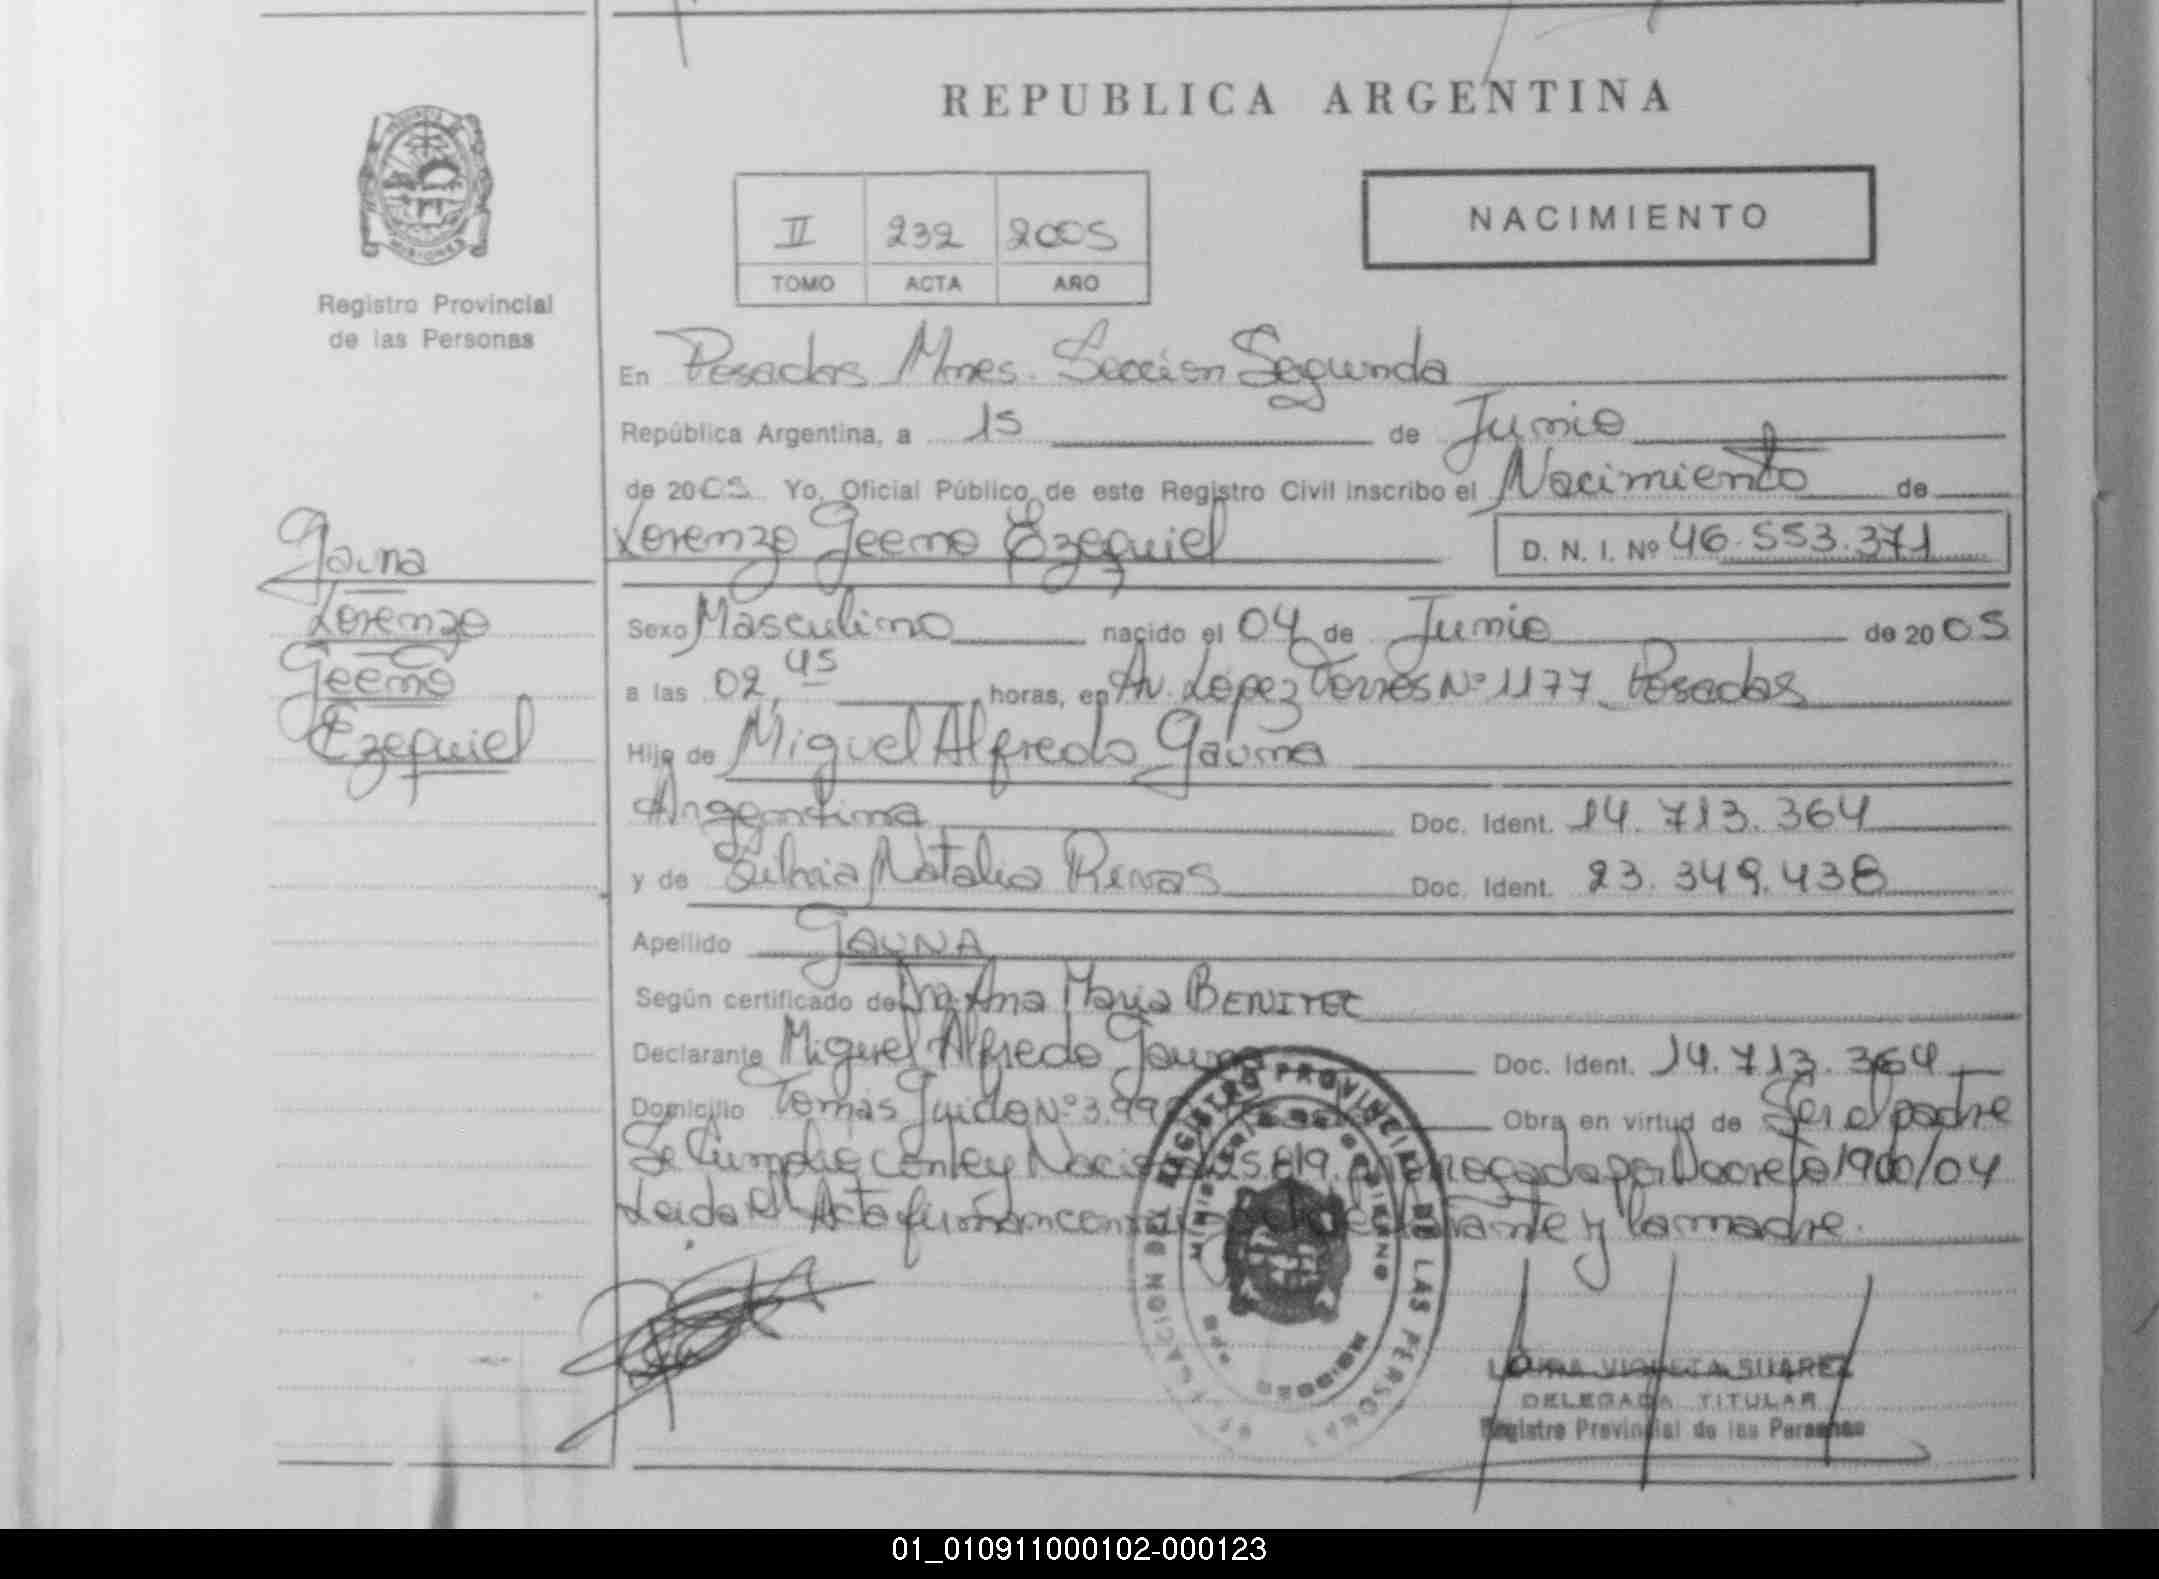 REPUBLICA ARGENTINA
II 232 2005
TOMO ACTA AÑO
NACIMIENTO
Registro Provincial
de las Personas
En Posadas Mnes. Sección Segunda
República Argentina, a 15 de Junio
de 2005 Yo, Oficial Público de este Registro Civil inscribo el Nacimiento de
Lorenzo Geeno Ezequiel D. N. I. Nº 46.553.371
Gauna
Lorenzo
Geeno
Ezequiel
Sexo Masculino nacido el 04 de Junio de 2005
a las 02,45 horas, en Av. Lopez Torres Nº 1177 Posadas
Hijo de Miguel Alfredo Gauna
Argentina Doc. Ident. 14.713.364
y de Silvia Natalia Rivas Doc. Ident. 23.349.438
Apellido GAUNA
Según certificado de Dra. Ana Maria BENITEC
Declarante Miguel Alfredo Gauna Doc. Ident. 14.713.364
Domicilio Tomás Guido Nº 3.99 Obra en virtud de Ser el padre
Se Cumplio con ley Nacional 25.819. por Decreto 1900/04
Leida el Acta firman conmigo el declarante y la madre.
REGISTRO PROVINCIAL DE LAS PERSONAS
MINISTERIO DE GOBIERNO
MISIONES
VIOLETA SUAREZ
DELEGADA TITULAR
Registro Provincial de las Personas
01_010911000102-000123